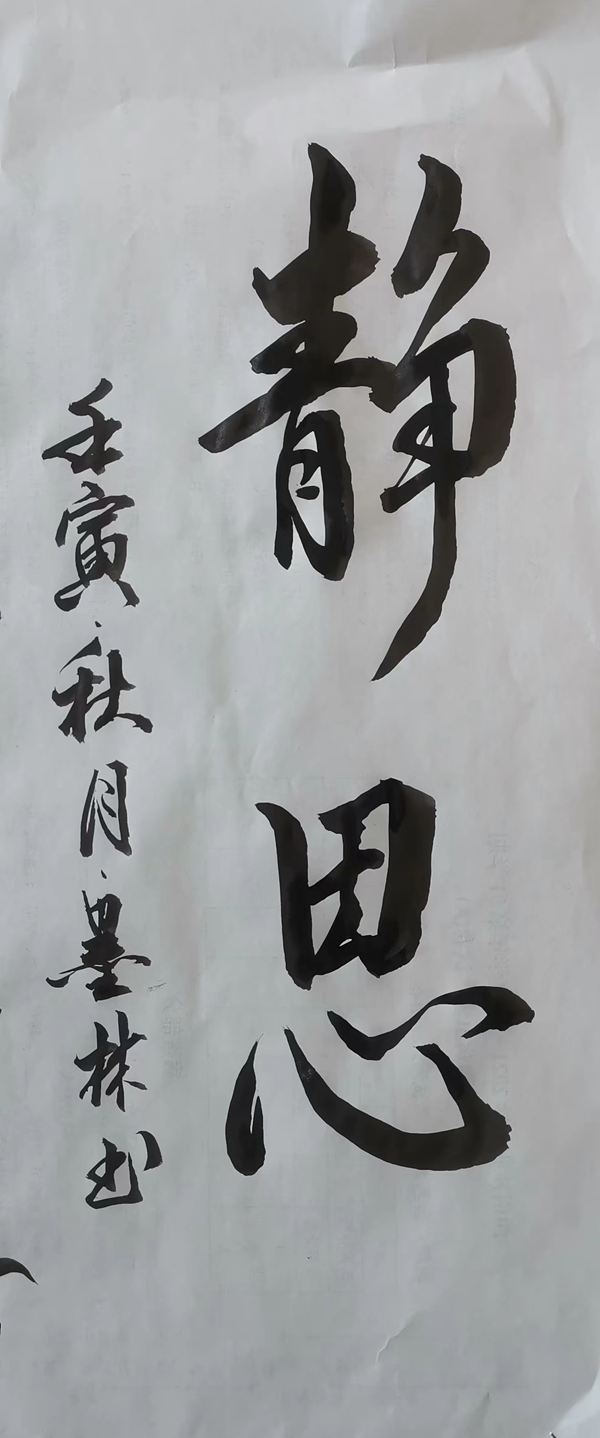 静思
壬寅秋月墨林书